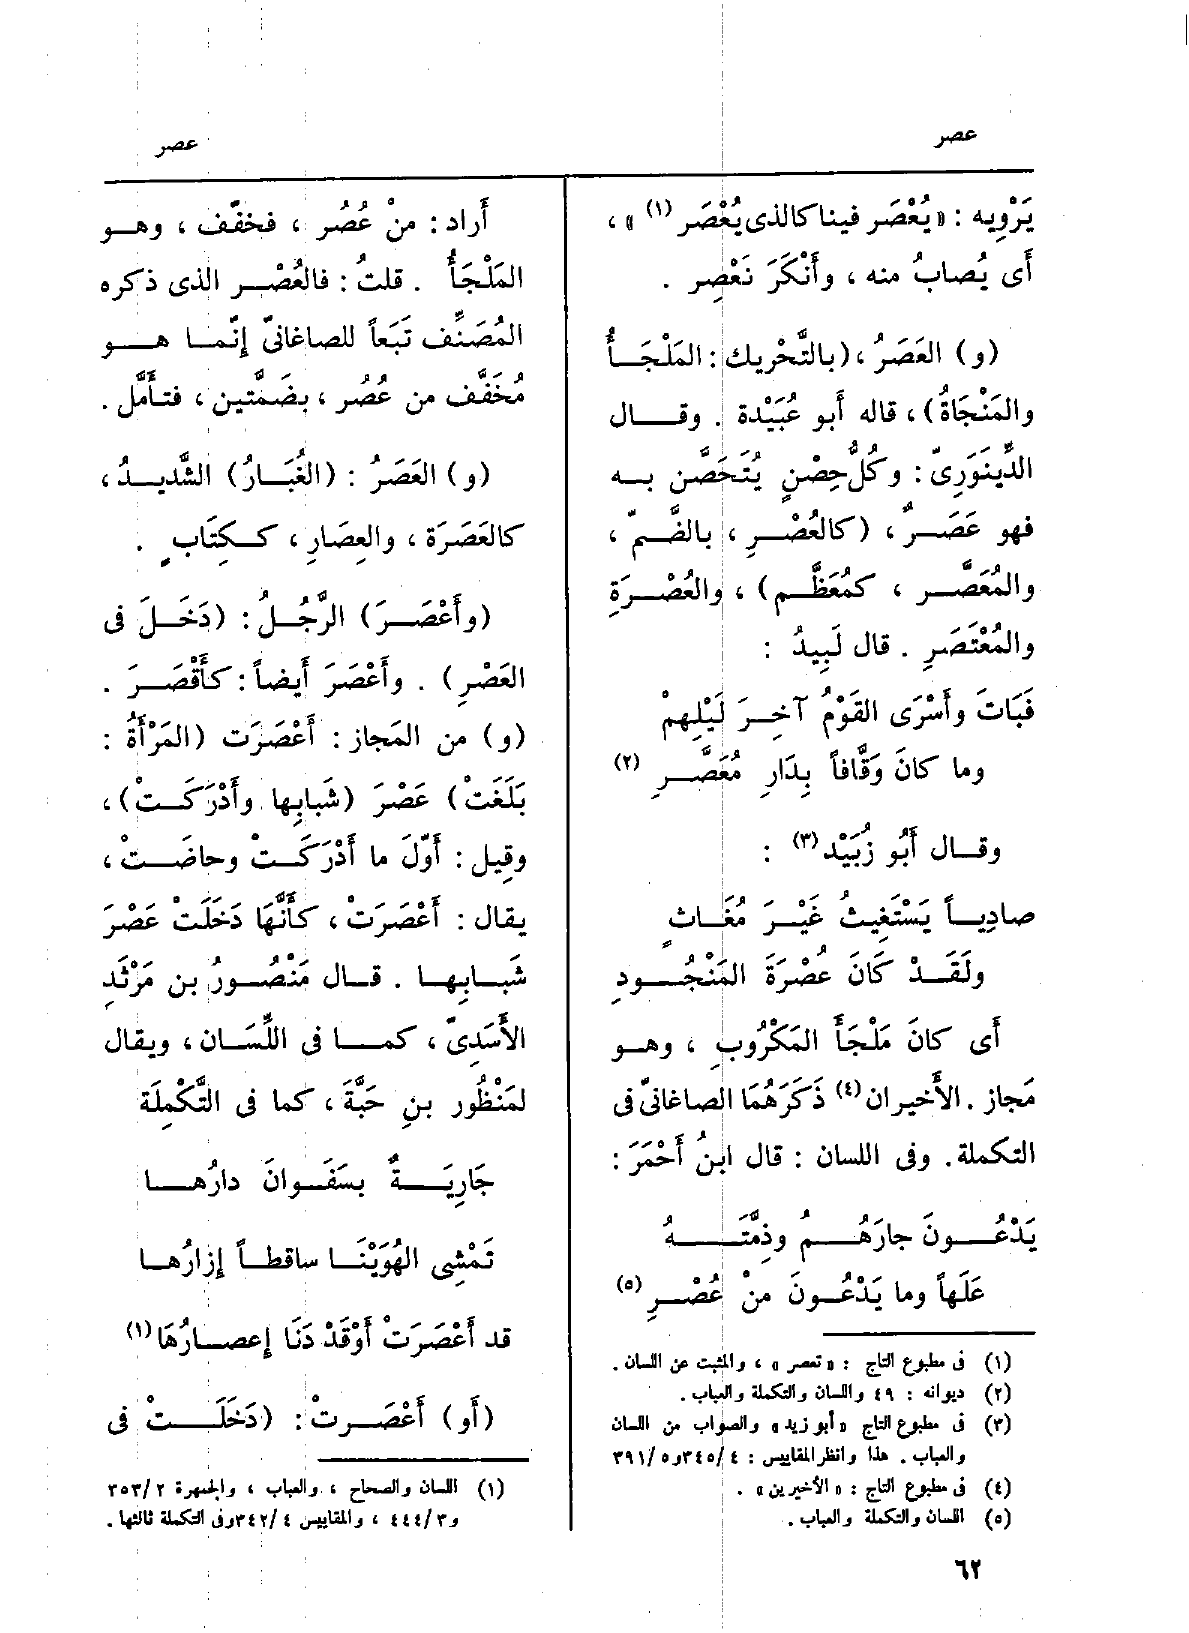 عصر
عصر
يَرْوِيه : « يُعْصَر فينا كالذى يُعْصَر (١) » ،
أى يُصابُ منه ، وأَنْكَرَ نَعْصِر .
(و) العَصَرُ ، (بالتَّحْرِيك : المَلْجَـأُ
والمَنْجَاةُ) ، قاله أَبو عُبَيْدة . وقـال
الدِّينَوَرِىّ : وكُلُّ حِصْنٍ يُتَحَصَّن بـه
فهو عَصَـرٌ ، (كالعُصْـرِ ، بالضَّـمّ ،
والمُعَصَّـر ، كمُعَظَّـم) ، والعُصْـرَةِ
والمُعْتَصَرِ . قال لَبِيدُ :
فَبَاتَ وأَسْرَى القَوْمُ آخِـرَ لَيْلِهِمْ
وما كانَ وَقَّافاً بِدَارِ مُعَصَّـرِ (٢)
وقـال أَبُو زُبَيْد (٣) :
صادِيـاً يَسْتَغِيثُ غَيْـرَ مُغَـاثٍ
ولَقَـدْ كَانَ عُصْرَةَ المَنْجُـودِ
أى كانَ مَلْجَأَ المَكْرُوبِ ، وهـو
مَجاز . الأَخيران (٤) ذَكَرَهُمَا الصاغانىّ فى
التكملة . وفى اللسان : قال ابنُ أَحْمَرَ :
يَدْعُـونَ جارَهُـمُ وذِمَّتَـهُ
عَلَهاً وما يَدْعُـونَ مِنْ عُصْـرِ (٥)
(١) فى مطبوع التاج : « تعصر » ، والمثبت عن اللسان .
(٢) ديوانه : ٤٩ واللسان والتكملة والعباب .
(٣) فى مطبوع التاج « أبو زيد » والصواب من اللسان
والعباب . هذا وانظر المقاييس : ٤ /٣٤٥ و٥ /٣٩١
(٤) فى مطبوع التاج : « الأخيرين » .
(٥) اللسان والتكملة والعباب .
أَراد : مِنْ عُصُر ، فخفَّف ، وهـو
المَلْجَأُ . قلتُ : فالعُصْـر الذى ذكره
المُصَنِّف تَبَعاً للصاغانىّ إِنَّمـا هـو
مُخَفَّف من عُصُر ، بضمَّتين ، فتأَمَّل .
(و) العَصَرُ : (الغُبَـارُ) الشَّدِيـدُ ،
كالعَصَرَة ، والعِصَارِ ، كـكِتَابٍ .
(وأَعْصَـرَ) الرَّجُـلُ : (دَخَـلَ فى
العَصْرِ) . وأَعْصَرَ أَيضاً : كأَقْصَـرَ .
(و) من المَجاز : أَعْصَرَت (المَرْأَةُ :
بَلَغَتْ) عَصْرَ (شَبابِها وأَدْرَكَـتْ) ،
وقِيل : أَوّلَ ما أَدْرَكَـتْ وحاضَـتْ ،
يقال : أَعْصَرَتْ ، كأَنَّهَا دَخَلَتْ عَصْرَ
شَبـابِهـا . قـال مَنْصُـورُ بن مَرْثَدٍ
الأَسَدِىّ ، كمـا فى اللِّسَـان ، ويقال
لمَنْظُور بنِ حَبَّةَ ، كما فى التَّكْمِلَة
جَارِيَـةٌ بسَفَـوانَ دارُهـا
تَمْشِى الهُوَيْنَـا ساقطـاً إِزارُهـا
قد أَعْصَرَتْ أَوْقَدْ دَنَا إِعصـارُهَا (١)
(أَو) أَعْصَـرتْ : (دَخَلَـتْ فى
(١) اللسان والصحاح ، والعباب ، والجمهرة ٢ /٣٥٣
و٣ /٤٤٤ ، والمقاييس ٤ /٣٤٢ وفى التكملة ثالثها .
٦٢